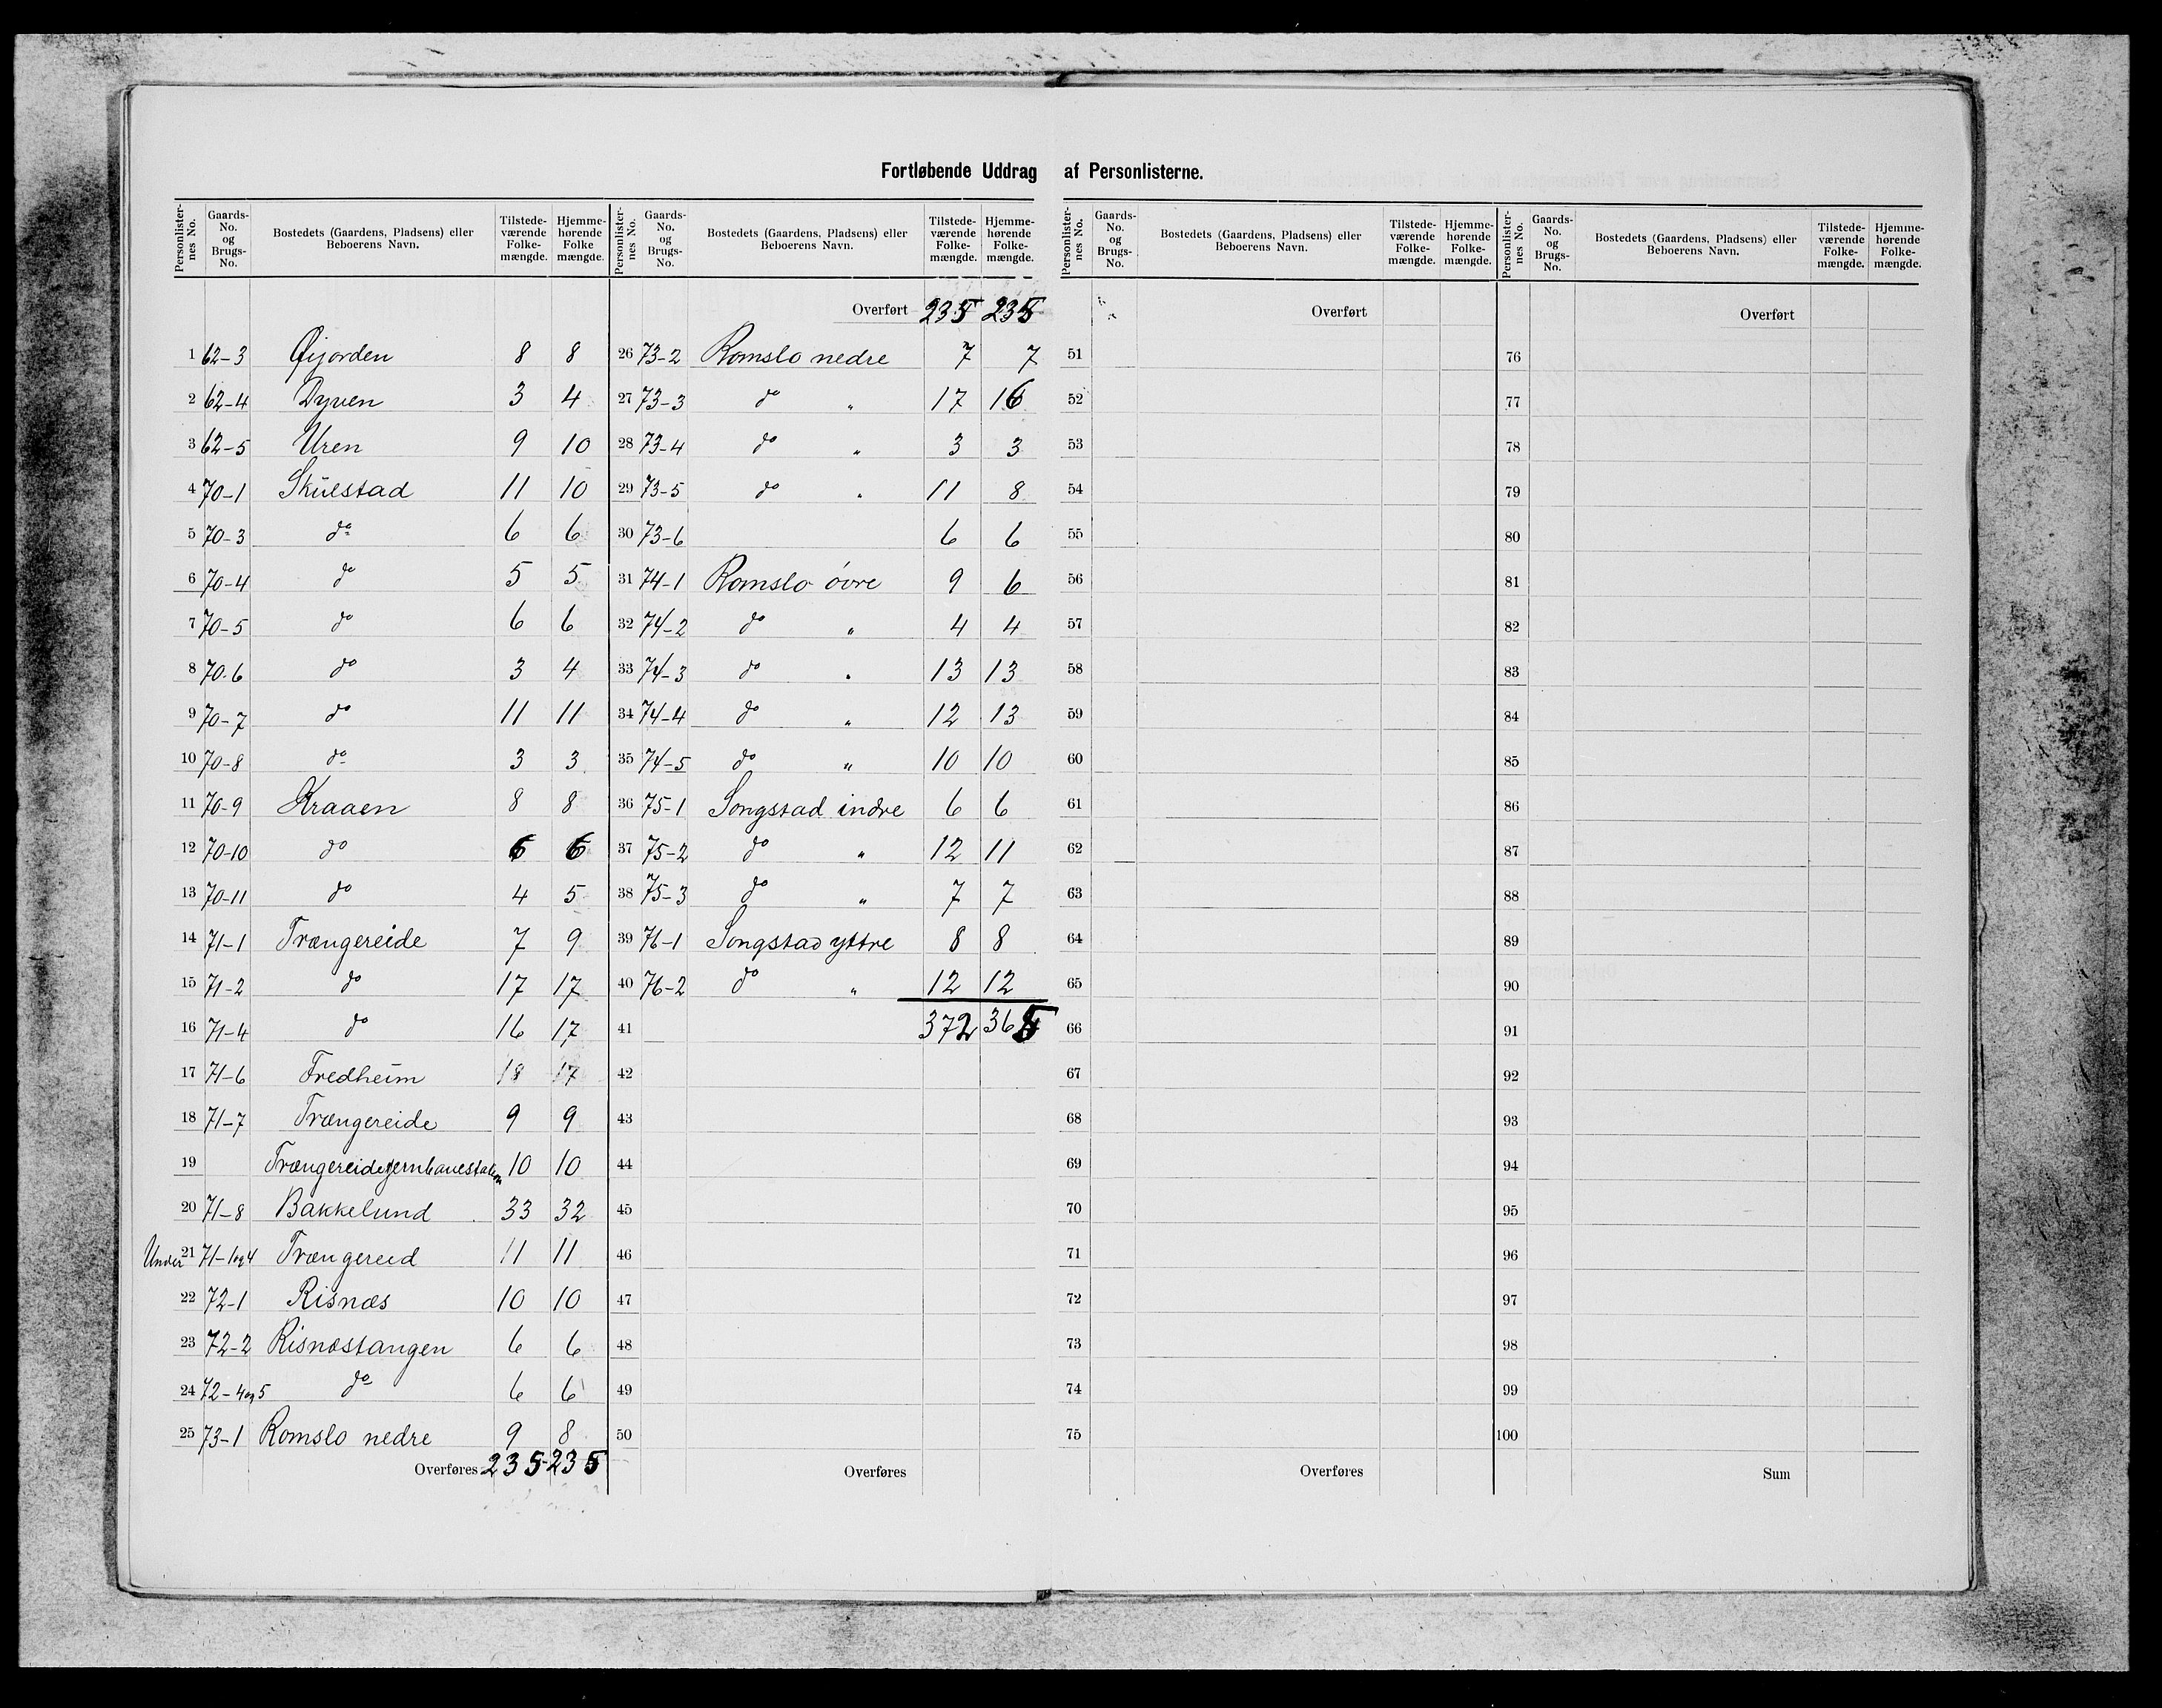 Fortløbende Uddrag af Personlisterne.
Personlisternes No. Gaards-No. og Brugs-No. Bostedets (Gaardens, Pladsens) eller Beboerens Navn. Tilstedeværende Folkemængde. Hjemmehørende Folke mængde.
1 62-3 Øijorden 8 8
2 62-4 Dyven 3 4
3 62-5 Uren 9 10
4 70-1 Skulestad 11 10
5 70-3 do 6 6
6 70-4 do 5 5
7 70-5 do 6 6
8 70-6 do 3 4
9 70-7 do 11 11
10 70-8 do 3 3
11 70-9 Kraaen 8 8
12 70-10 do 6 6
13 70-11 do 4 5
14 71-1 Trængereide 7 9
15 71-2 do 17 17
16 71-4 do 16 17
17 71-6 Fredheim 18 17
18 71-7 Trængereide 9 9
19 Trængereide jernbanestation 10 10
20 71-8 Bakkelund 33 32
Under 21 71-1og4 Trængereid 11 11
22 72-1 Risnæs 10 10
23 72-2 Risnæstangen 6 6
24 72-4og5 do 6 6
25 73-1 Romslo nedre 9 8
Overføres 235 235
Personlisternes No. Gaards-No. og Brugs-No. Bostedets (Gaardens, Pladsens) eller Beboerens Navn. Tilstedeværende Folkemængde. Hjemmehørende Folkemængde.
Overført 235 235
26 73-2 Romslo nedre 7 7
27 73-3 do " 17 16
28 73-4 do " 3 3
29 73-5 do " 11 8
30 73-6 6 6
31 74-1 Romslo övre 9 6
32 74-2 do " 4 4
33 74-3 do " 13 13
34 74-4 do " 12 13
35 74-5 do " 10 10
36 75-1 Songstad indre 6 6
37 75-2 do " 12 11
38 75-3 do " 7 7
39 76-1 Songstad yttre 8 8
40 76-2 do " 12 12
41 372 365
42
43
44
45
46
47
48
49
50
Overføres
Personlisternes No. Gaards-No. og Brugs-No. Bostedets (Gaardens, Pladsens) eller Beboerens Navn. Tilstedeværende Folkemængde. Hjemmehørende Folkemængde.
Overført
51
52
53
54
55
56
57
58
59
60
61
62
63
64
65
66
67
68
69
70
71
72
73
74
75
Overføres
Personlisternes No. Gaards-No. og Brugs-No. Bostedets (Gaardens, Pladsens) eller Beboerens Navn. Tilstedeværende Folkemængde. Hjemmehørende Folkemængde.
Overført
76
77
78
79
80
81
82
83
84
85
86
87
88
89
90
91
92
93
94
95
96
97
98
99
100
Sum